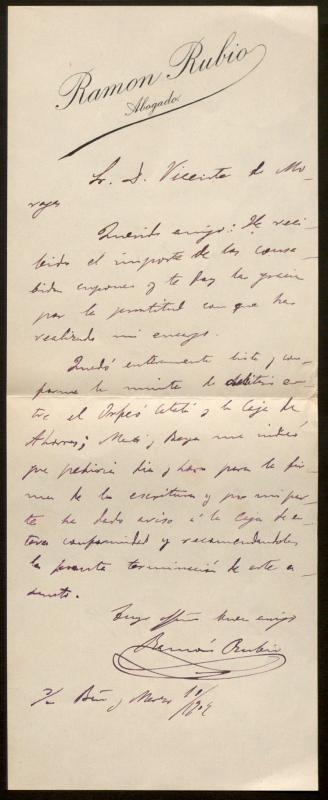 Ramon Rubio
Abogado
Sr. D. Vicente de Mo-
ragas
Querido amigo: He reci-
bido el importe de los conse-
bidos cupones y te doy las gracias
por la prontitud con que has
realizado mi encargo.
Quedó enteramente lista y con-
forme la minuta de en-
tre el Orfeó Catalá y la Caja de
Ahorros; Marti y Beya me indicó
que pediria dia y hora para la fir-
ma de la escritura y por mi par-
te he dado aviso á la Caja de es-
ta conformidad y recomendandoles
la pronta terminación de este a-
sunto.
Tuyo affmo buen amigo
Ramón Rubio
S/c Bna y Marzo 10/1904